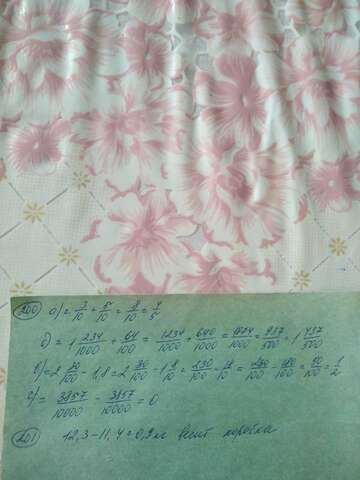 200 а) = 3/10 + 5/10 = 8/10 = 4/5
б) = 1 234/1000 + 64/100 = 1234/1000 + 640/1000 = 1874/1000 = 937/500 = 1 437/500
в) = 2 30/100 - 1,8 = 2 30/100 - 1 8/10 = 230/100 - 18/10 = 230/100 - 180/100 = 50/100 = 1/2
г) = 3857/10000 - 3857/10000 = 0
201 12,3 - 11,4 = 0,9 кг весит коробка